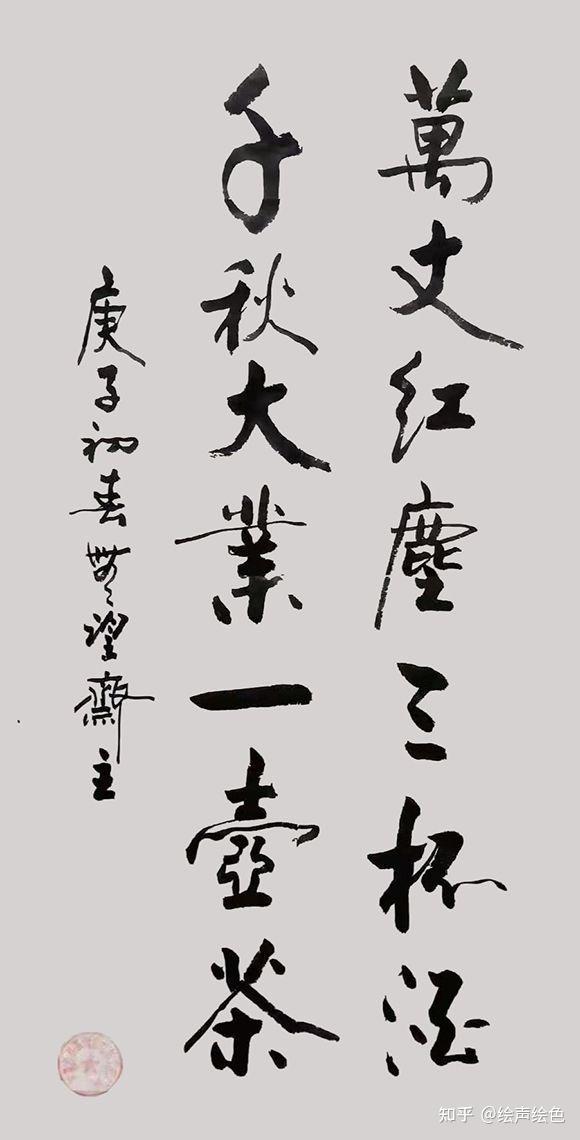 萬丈红塵三杯酒
千秋大業一壺茶
庚子初春無望齋主
知乎 @绘声绘色